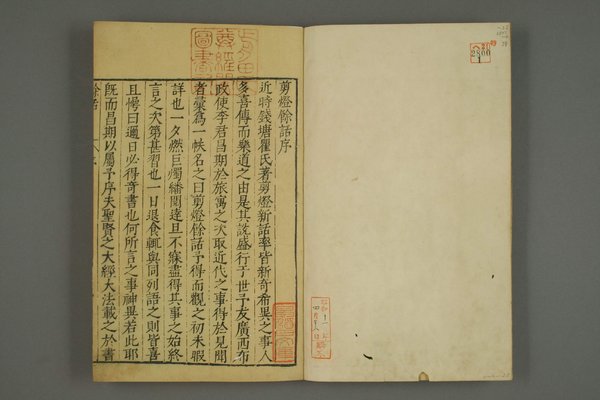 剪燈餘話序
近時錢塘瞿氏著剪燈新話率皆新奇希異之事人
多喜傳而樂道之由是其說盛行于世予友廣西布
政使李君昌期於旅寓之次取近代之事得於見聞
者彙為一帙名之曰剪燈餘話予得而觀之初未暇
詳也一夕燃巨燭繙閱達旦不寐盡得其事之始終
言之次第甚習也一日退食輒與同列語之則皆喜
且愕曰邇日必得奇書也何所言之事神異若此耶
旣而昌期以屬予序夫聖賢之大經大法載之於書